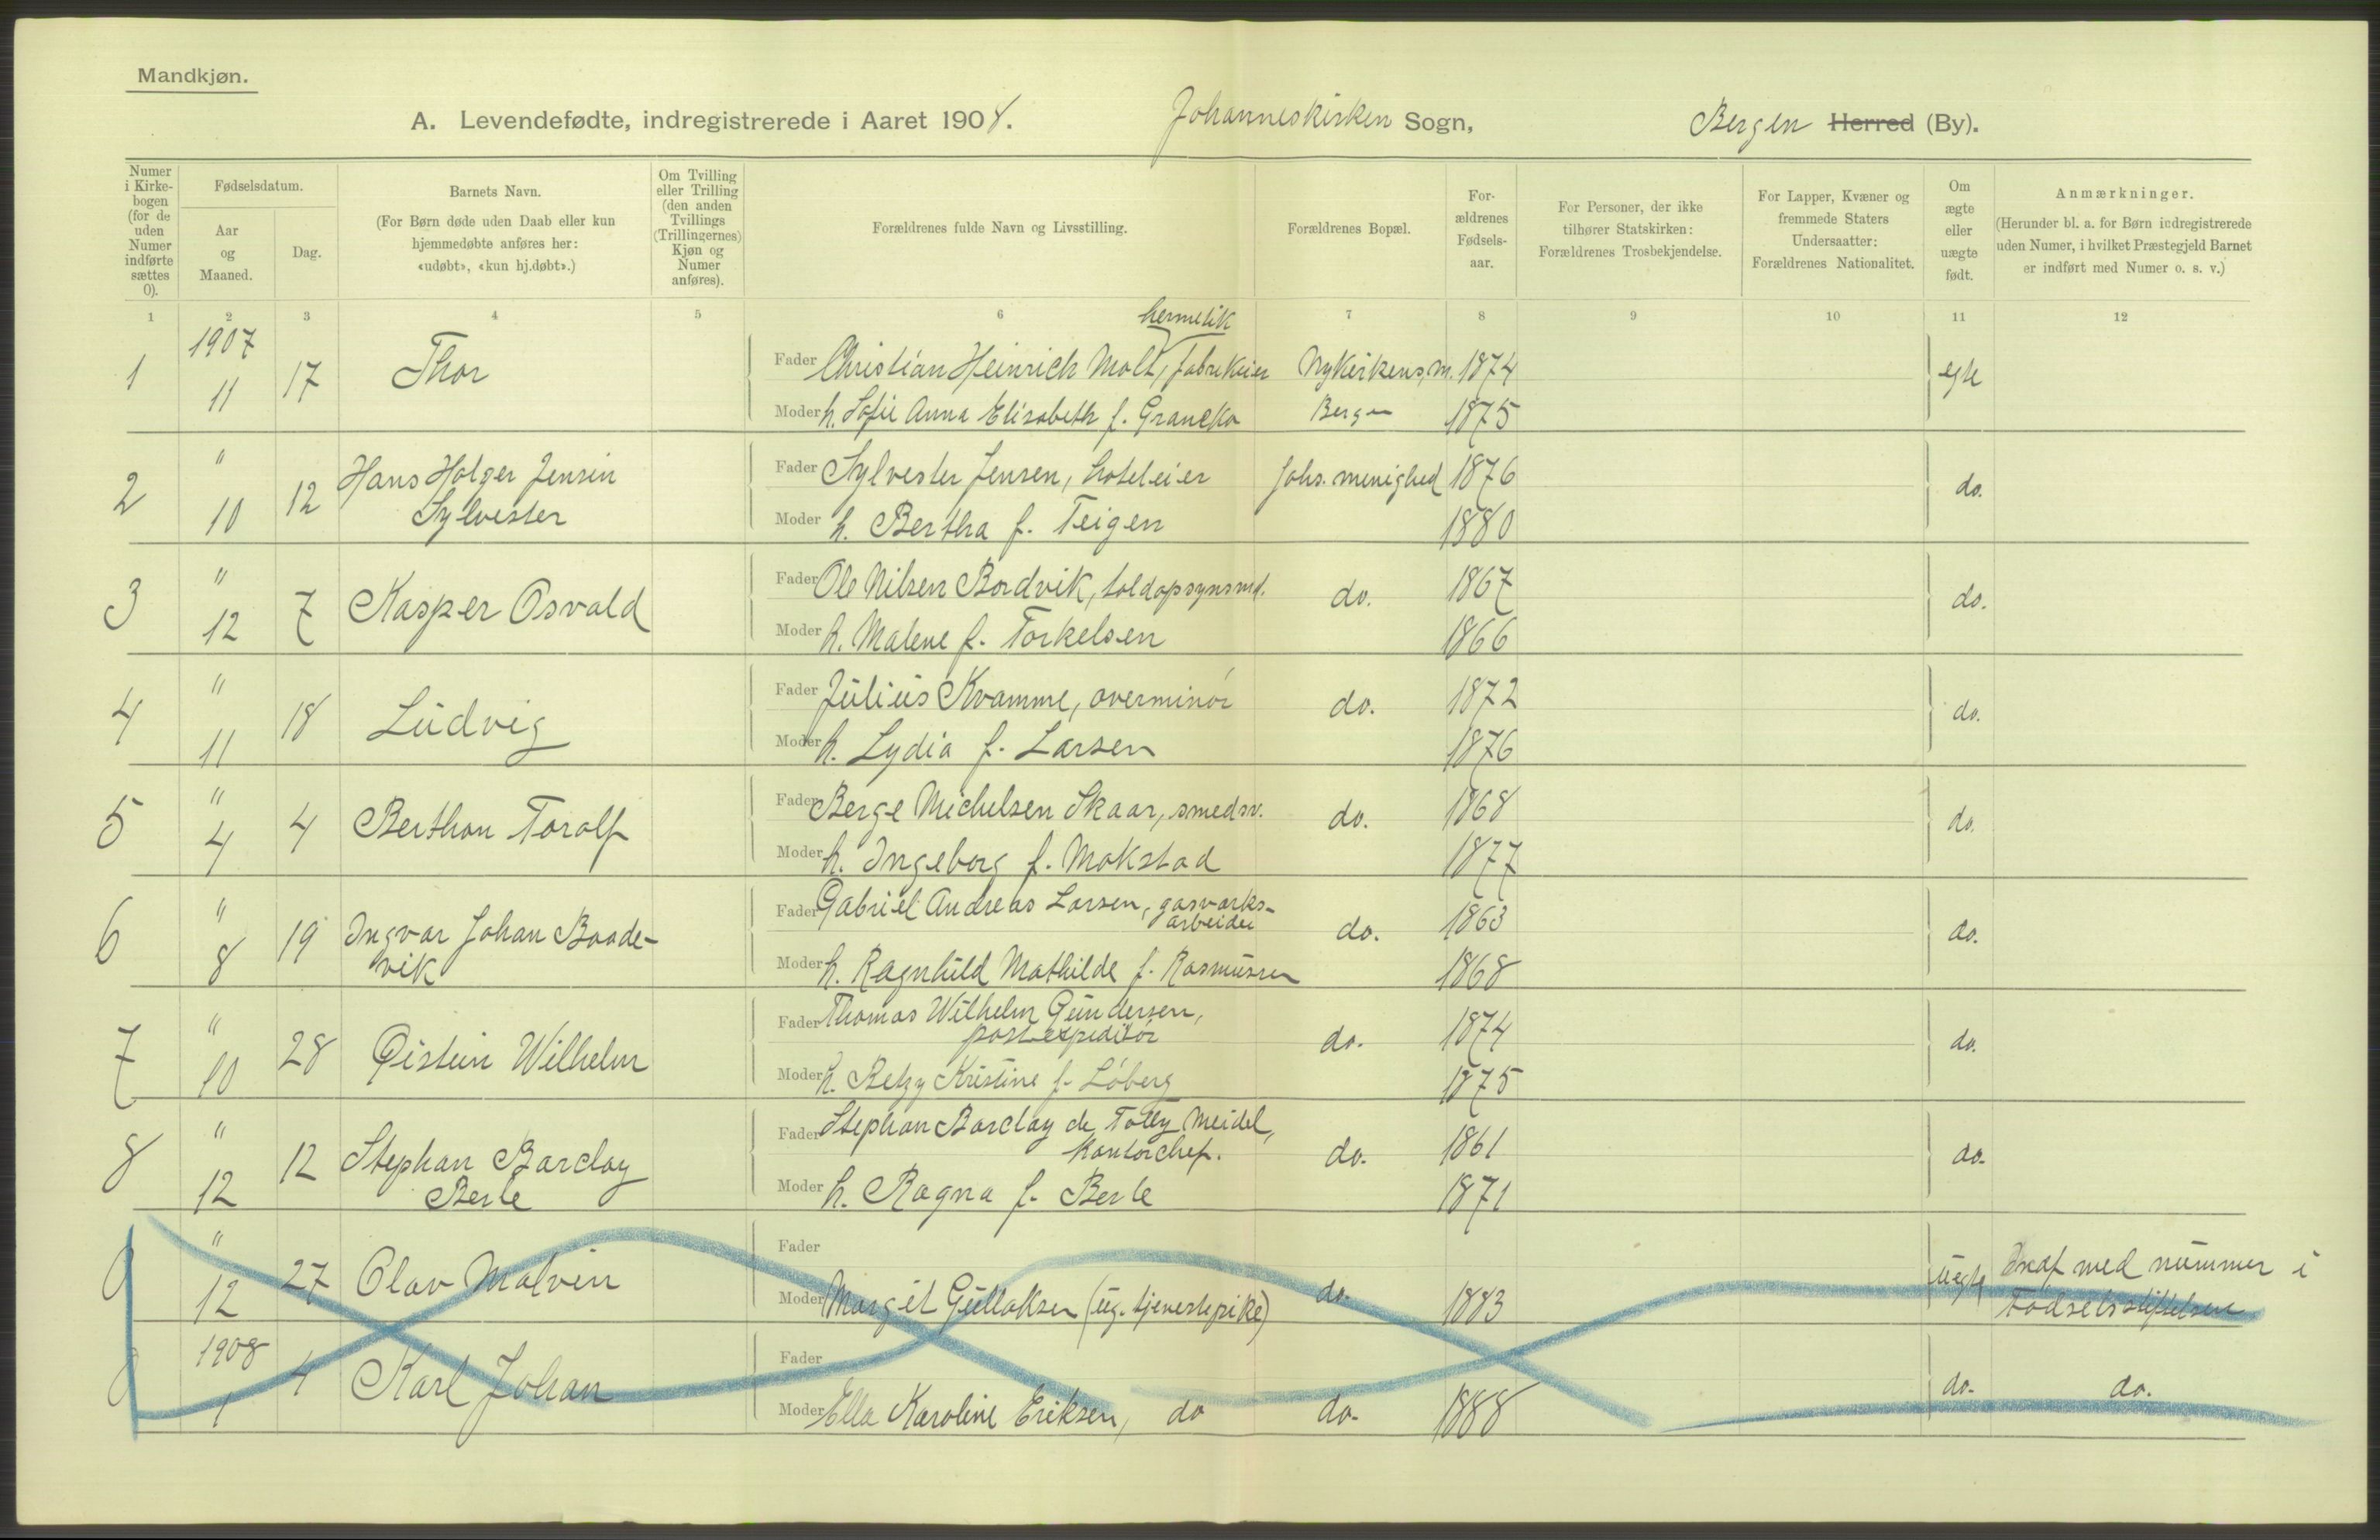 Mandkjøn.
A. Levendefødte, indregistrerede i Aaret 1908. Johanneskirken Sogn, Bergen Herred (By).
Numer i Kirke-bogen (for de uden Numer indførte sættes 0).
Fødselsdatum.
Aar og Maaned.
Dag.
Barnets Navn.
(For Børn døde uden Daab eller kun hjemmedøbte anføres her: «udøbt», «kun hj.døbt».)
Om Tvilling eller Trilling (den anden Tvillings (Trillingernes) Kjøn og Numer anføres).
Forældrenes fulde Navn og Livsstilling.
Forældrenes Bopæl.
For-ældrenes Fødsels-aar.
For Personer, der ikke tilhører Statskirken: Forældrenes Trosbekjendelse.
For Lapper, Kvæner og fremmede Staters Undersaatter: Forældrenes Nationalitet.
Om ægte eller uægte født.
Anmærkninger.
(Herunder bl. a. for Børn indregistrerede uden Numer, i hvilket Præstegjeld Barnet er indført med Numer o. s. v.)
1 2 3 4 5 6 7 8 9 10 11 12
hermetik
1 1907 11 17 Thor Fader Christian Heinrich Molt, fabrikeier Nykirkens m. 1874 egte
Moder h. Sofie Anna Elisabeth f. Bergen 1875
2 " 10 12 Hans Holger Jensin Sylvester Fader Sylvester Jensen, hoteleier Johs. menighed 1876 do.
Moder h. Bertha f. Teigen 1880
3 " 12 7 Kasper Osvald Fader Ole Nilsen Bordvik, toldopsynsmd. do. 1867 do.
Moder h. Malene f. Torkelsen 1866
4 " 11 18 Ludvig Fader Julius Kvamme, overminör do. 1872 do.
Moder h. Lydia f. Larsen 1876
5 " 4 4 Berthon Toralf Fader Berge Michelsen Skaar, smedsv. do. 1868 do.
Moder h. Ingeborg f. Mokstad 1877
6 " 8 19 Ingvar Johan Baade-vik Fader Gabriel Andreas Larsen, gasværks-arbeider do. 1863 do.
Moder h. Ragnhild Mathilde f. Rasmussen 1868
7 " 10 28 Øistein Wilhelm Fader Thomas Wilhelm Gundersen, postexpeditör do. 1874 do.
Moder h. Betzy Kristine f. Löberg 1875
8 " 12 12 Stephan Barclay Berle Fader Stephan Barclay de Tolly Meidel, Kontorchef. do. 1861 do.
Moder h. Ragna f. Berle 1871
0 " 12 27 Olav Malvin Fader
Moder Margit Gullaksen (ug. tjenestepike) do. 1883 uegte Indf med nummer i Födselsstiftelsen
0 1908 1 4 Karl Johan Fader
Moder Ella Karoline Eriksen, do do. 1888 do. do.